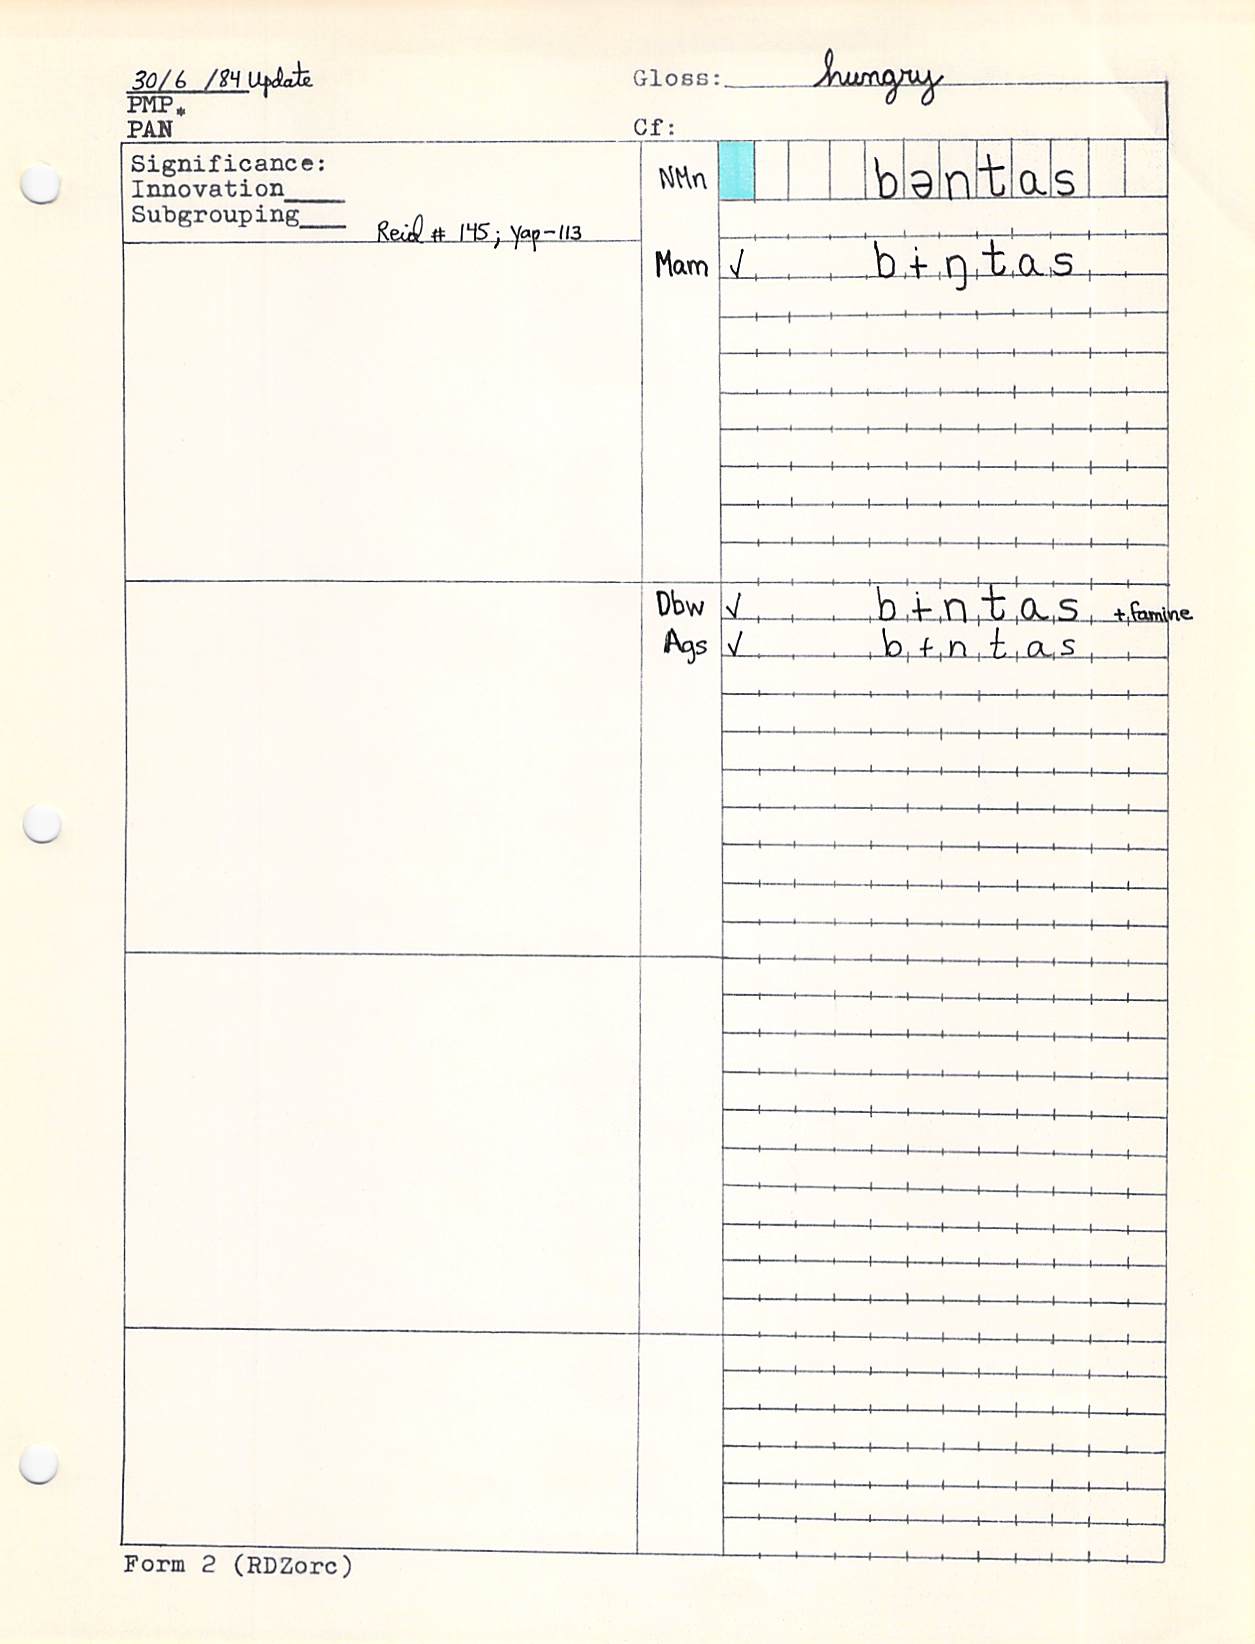 30/6 /84 Update
Gloss: hungry
PMP *
PAN
Cf:
Significance:
Innovation____
Subgrouping____
Reid # 145; Yap-113
NMn bəntas
Mam ✓ bɨŋtas
Dbw ✓ bɨntas + famine
Ags ✓ bɨntas
Form 2 (RDZorc)